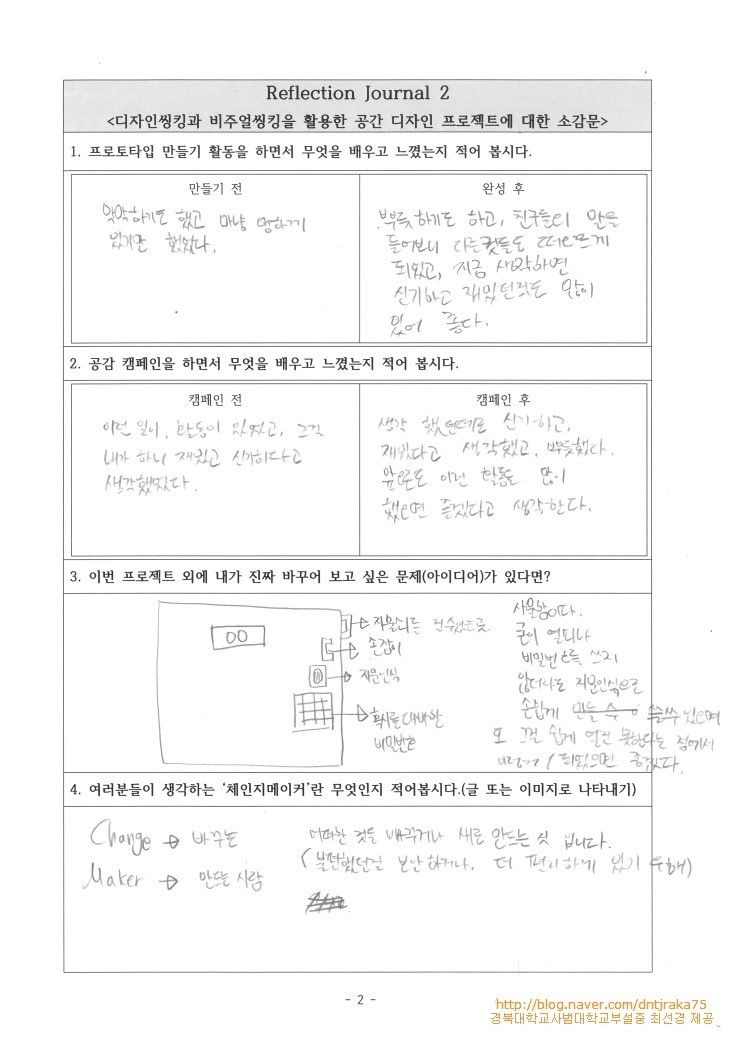 Reflection Journal 2
<디자인씽킹과 비주얼씽킹을 활용한 공간 디자인 프로젝트에 대한 소감문>
1. 프로토타입 만들기 활동을 하면서 무엇을 배우고 느꼈는지 적어 봅시다.
만들기 전
막막하기도 했고 마냥
있기만 했었다.
완성 후
뿌듯하기도 하고, 친구들의 말을
들어보니 다른것들도 떠오르게
되었고, 지금 생각하면
신기하고 재밌던적도 많이
있어 좋다.
2. 공감 캠페인을 하면서 무엇을 배우고 느꼈는지 적어 봅시다.
캠페인 전
이런 일이, 활동이 있었고, 그걸
내가 하니 재밌고 신기하다고
생각했었다.
캠페인 후
생각 했던대로 신기하고,
재밌다고 생각했고, 뿌듯했다.
앞으로도 이런 활동을 많이
했으면 좋겠다고 생각한다.
3. 이번 프로젝트 외에 내가 진짜 바꾸어 보고 싶은 문제(아이디어)가 있다면?
00
자물쇠를 곳
손잡이
지문인식
혹시를 대비한
비밀번호
사물함이다.
굳이 열쇠나
비밀번호를 쓰지
않더라도 지문인식으로
손쉽게 만들 수 쓸수 있으며
또 그걸 쉽게 열진 못한다는 점에서
되었으면 좋겠다.
4. 여러분들이 생각하는 '체인지메이커'란 무엇인지 적어봅시다.(글 또는 이미지로 나타내기)
Change → 바꾸는
Maker → 만드는 사람
어떠한 것을 바꾸거나 새로 만드는 것 입니다.
(불편했던걸 보완하거나, 더 편리하게 있기 위해)
- 2 -
http://blog.naver.com/dntjraka75
경북대학교사범대학교부설중 최선경 제공